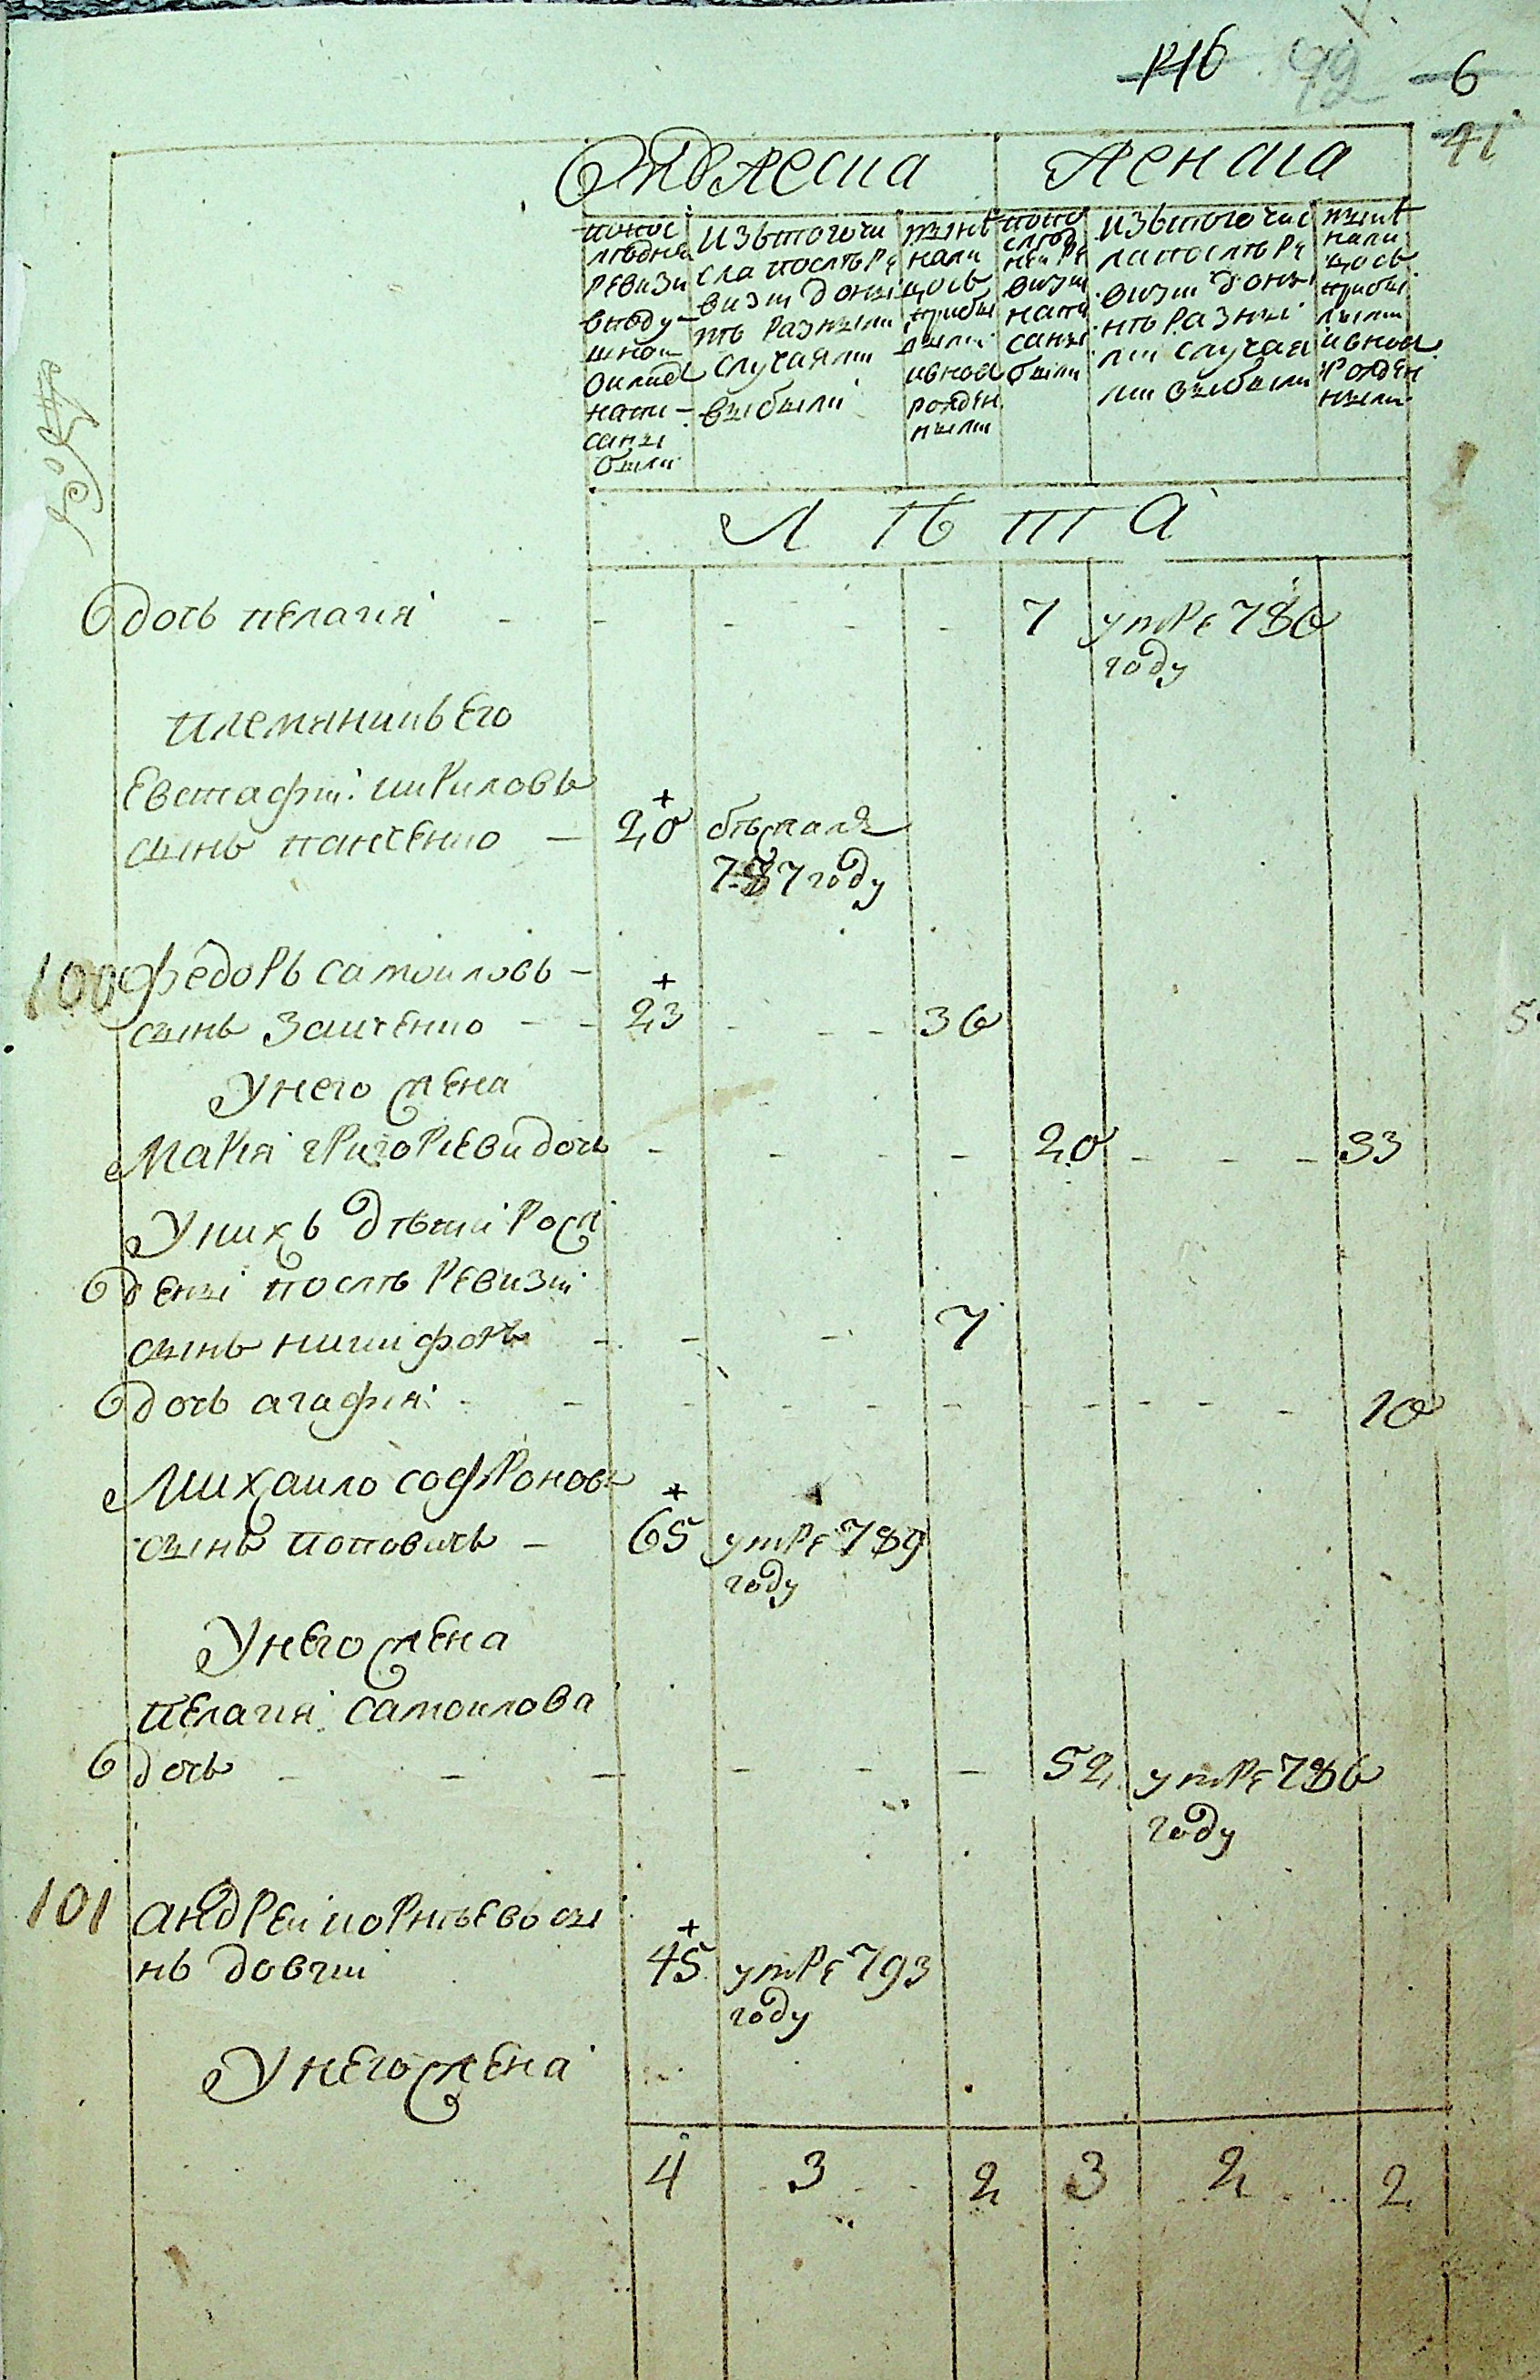 146 42 6
41
Мужеска Женска
попос
лѣдней
ревизи
вподу
шной
окладъ
напи-
саны
были
изътогочи
сла послѣре
визіи доны
нѣ разными
случаями
выбыли
нынѣ
нали
цось
прибы
лыми
ивнов
рожден
ными
попо
слѣд
ней ре
визіи
напи
саны
были
изътогочис
лапослѣ ре
визіи доны
нѣ разны
ми случая
ми выбыли
нынѣ
нали
цось
прибы
лыми
ивнов
рожден
ными
Лѣта
дочь пелагия - - - - - 7 умре 786
году
племянникъ Его
Евстафій кириловъ
сынъ панченко - 20 бѣжалъ
787 году
100 федоръ самоиловъ -
сынъ заиченко - - 23 - - - 36
У него жена
Мария григориева дочь - - - - 20 - - - 33
У нихъ дѣти рож
дены послѣ ревизіи
сынъ никифоръ - - - 7
дочь агафия - - - - - - - - - - 10
Михаило софроновъ
сынъ поповичъ - 65 умре 789
году
У него жена
пелагия самоилова
дочь - - - - - - 52 умре 786
году
101 андреи корнѣевъ сы
нъ довгии 45 умре 793
году
У него жена
4 3 2 3 2 2